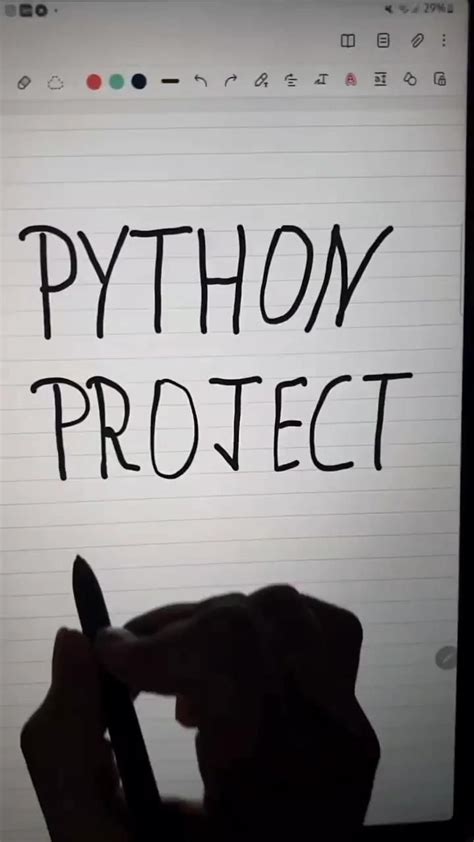 29%
PYTHON
PROJECT